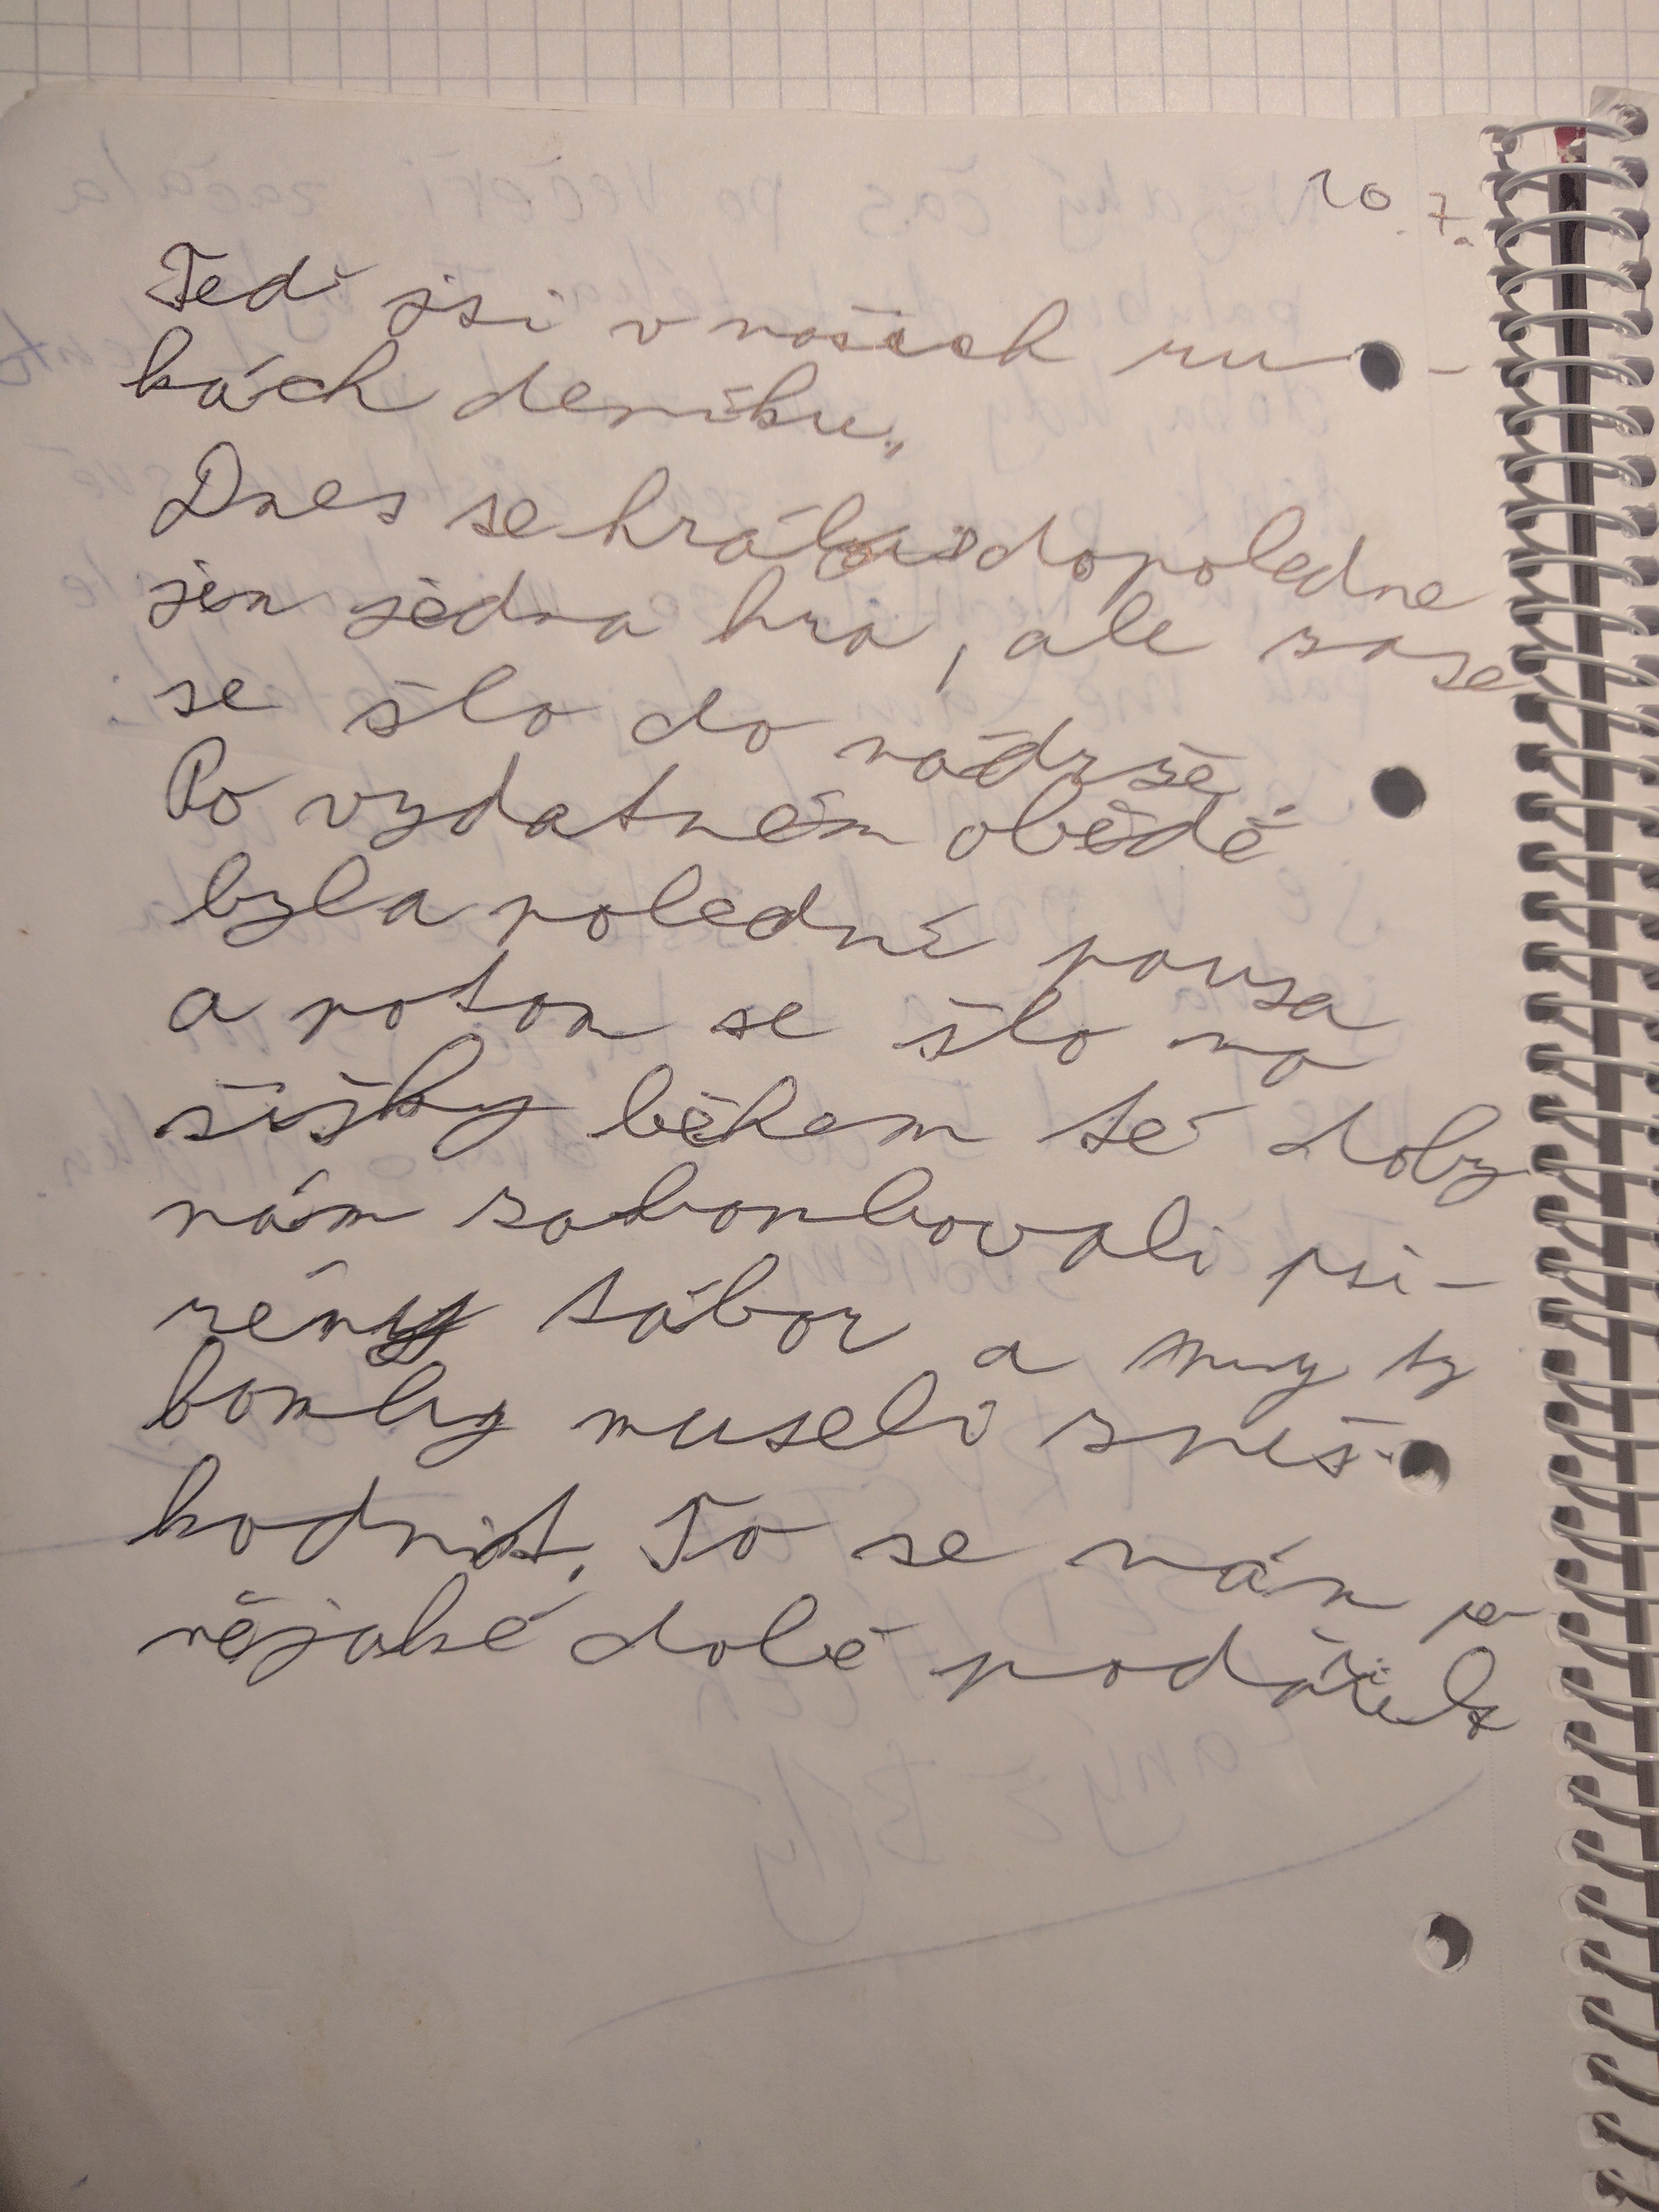 20.7.
Teď jsi v našich ru-
kách deníku.
Dnes se hrála dopoledne
jen jedna hra, ale zase
se šlo do nádrže.
Po vydatném obědě
byla polední pauza
a potom se šlo na
šišky během té doby
nám zabombovali psi-
rény tábor a my ty
bomby museli zneš-
kodnit. To se nám po
nějaké době podařilo